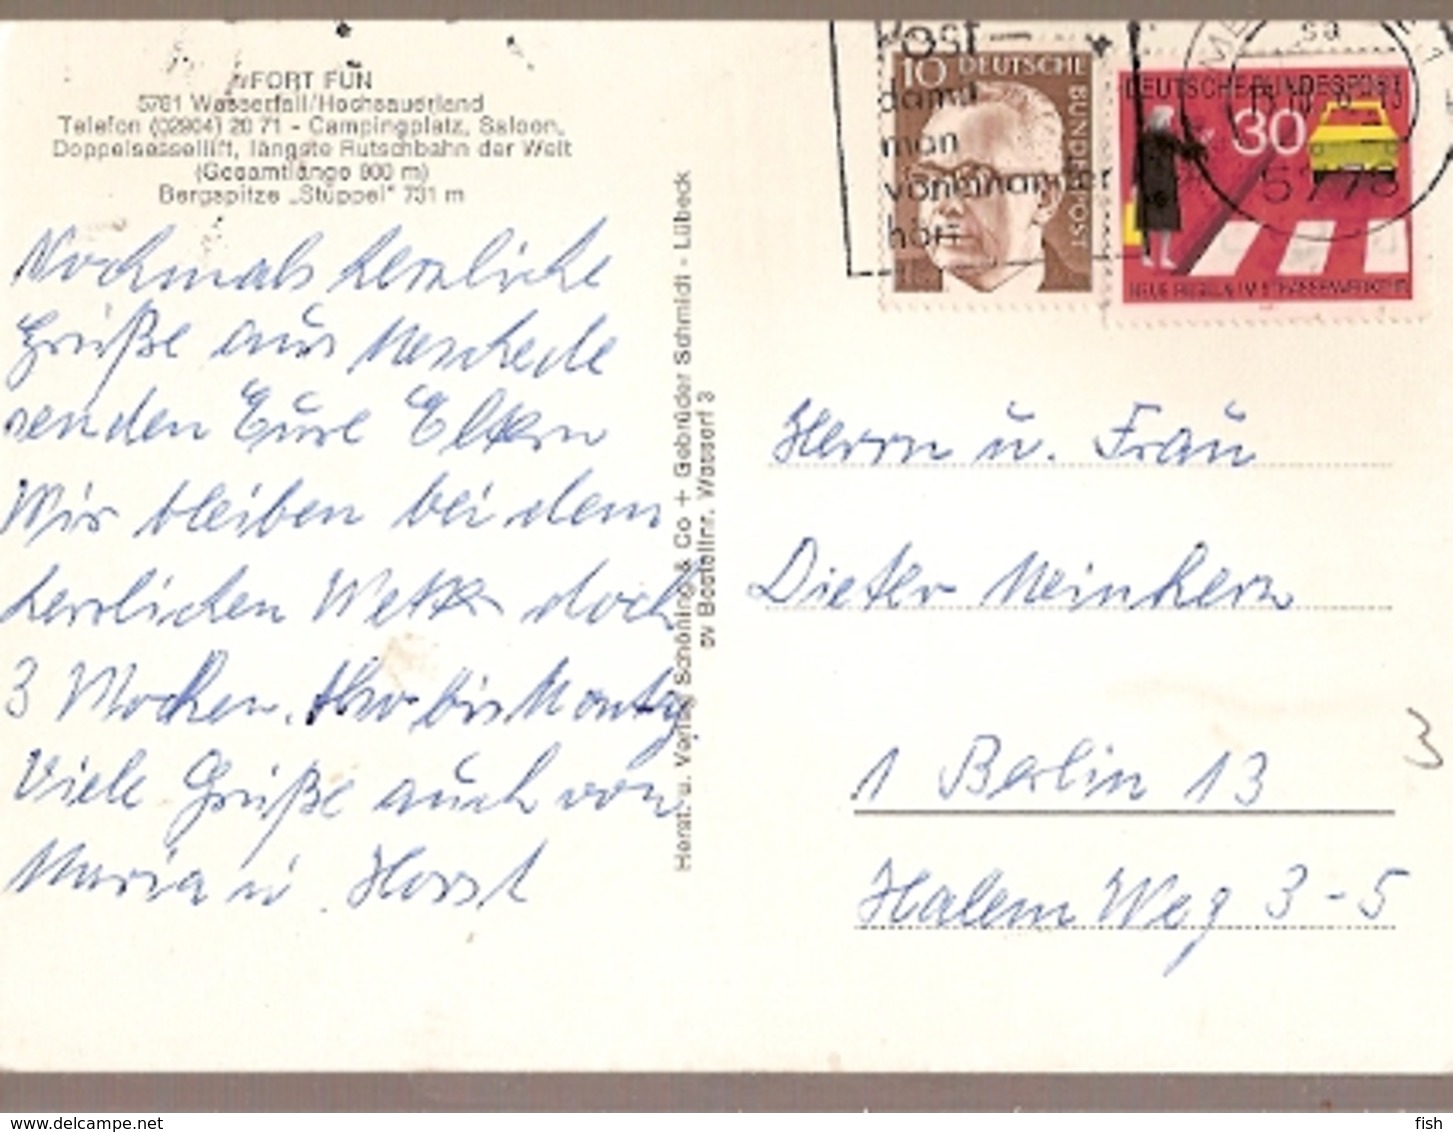 "FORT FUN
5781 Wasserfall/Hochsauerland
Telefon (02904) 20 71 - Campingplatz, Saloon,
Doppelsessellift, längste Rutschbahn der Welt
(Gesamtlänge 800 m)
Bergspitze „Stüppel" 731 m
Nochmals herzliche
Grüße aus Meschede
senden Eure Eltern
Wir bleiben bei dem
herrlichen Wetter doch
3 Wochen. Also bis Montg
Viele Grüße auch von
Maria u. Horst
Herst. u. Verlag Schöning & Co + Gebrüder Schmidt - Lübeck
Bestellnr. 3
Post-
damit
man
voneinander
hört
10 DEUTSCHE
BUNDESPOST
DEUTSCHE BUNDESPOST
30
NEUE REGELN IM STRASSENVERKEHR
sa
5778
Herrn u. Frau
Dieter Meinhern
1 Berlin 13
Halem Weg 3-5
3
www.delcampe.net
fish